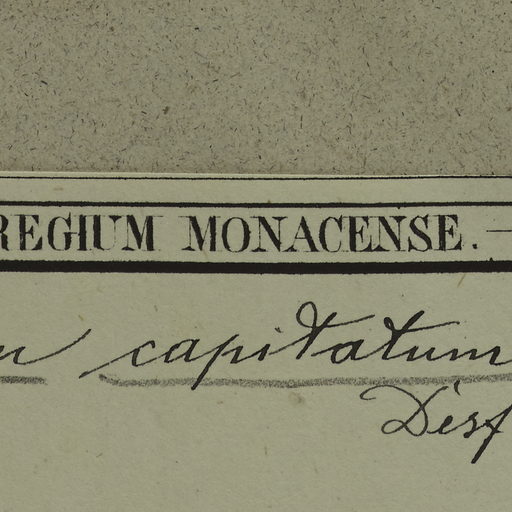 REGIUM MONACENSE. —
capitatum
Desf